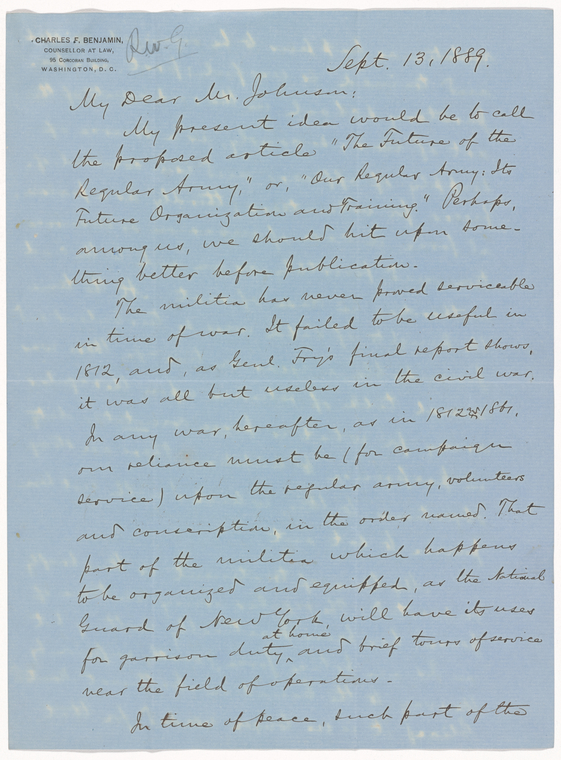 CHARLES F. BENJAMIN,
COUNSELLOR AT LAW,
95 CORCORAN BUILDING,
WASHINGTON, D. C.
Sept. 13, 1889.
My Dear Mr. Johnson:
My present idea would be to call
the proposed article "The Future of the
Regular Army," or, "Our Regular Army: Its
Future Organization and Training." Perhaps,
among us, we should hit upon some-
thing better before publication.
The militia has never proved serviceable
in time of war. It failed to be useful in
1812, and, as Genl. Fry's final report shows,
it was all but useless in the civil war.
In any war, hereafter, as in 1812 1861,
our reliance must be (for campaign
service) upon the regular army, volunteers
and conscription, in the order named. That
part of the militia which happens
to be organized and equipped, as the National
Guard of New York, will have its uses
for garrison duty, at home and brief tours of service
near the field of operations.
In time of peace, such part of the